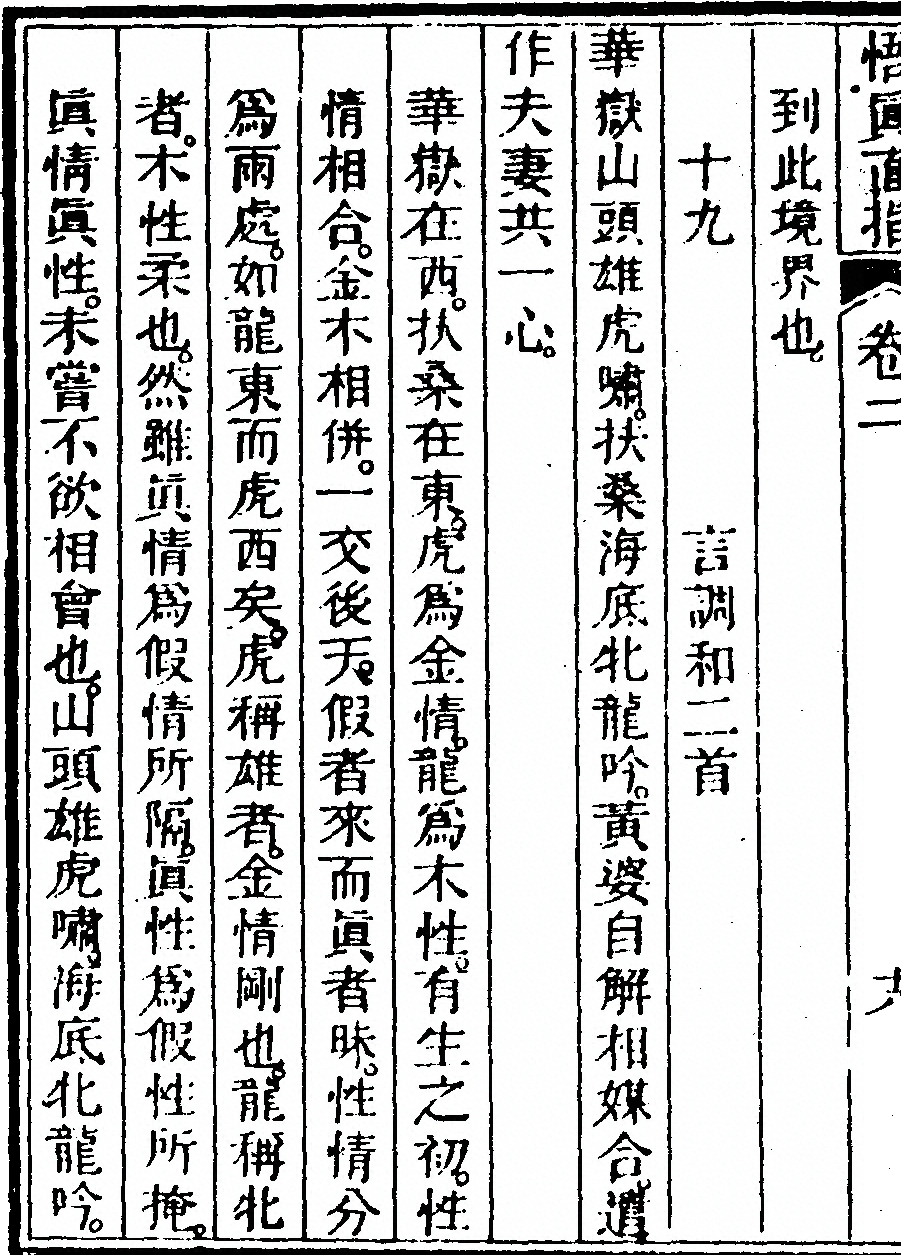 悟眞直指 卷二
到此境界也。
十九 言調和二首
華嶽山頭雄虎嘯。扶桑海底牝龍吟。黃婆自解相媒合。遣
作夫妻共一心。
華嶽在西。扶桑在東。虎爲金情。龍爲木性。有生之初。性
情相合。金木相併。一交後天。假者來而眞者昧。性情分
爲兩處。如龍東而虎西矣。虎稱雄者。金情剛也。龍稱牝
者。木性柔也。然雖眞情爲假情所隔。眞性爲假性所掩。
眞情眞性。未嘗不欲相會也。山頭雄虎嘯。海底牝龍吟。